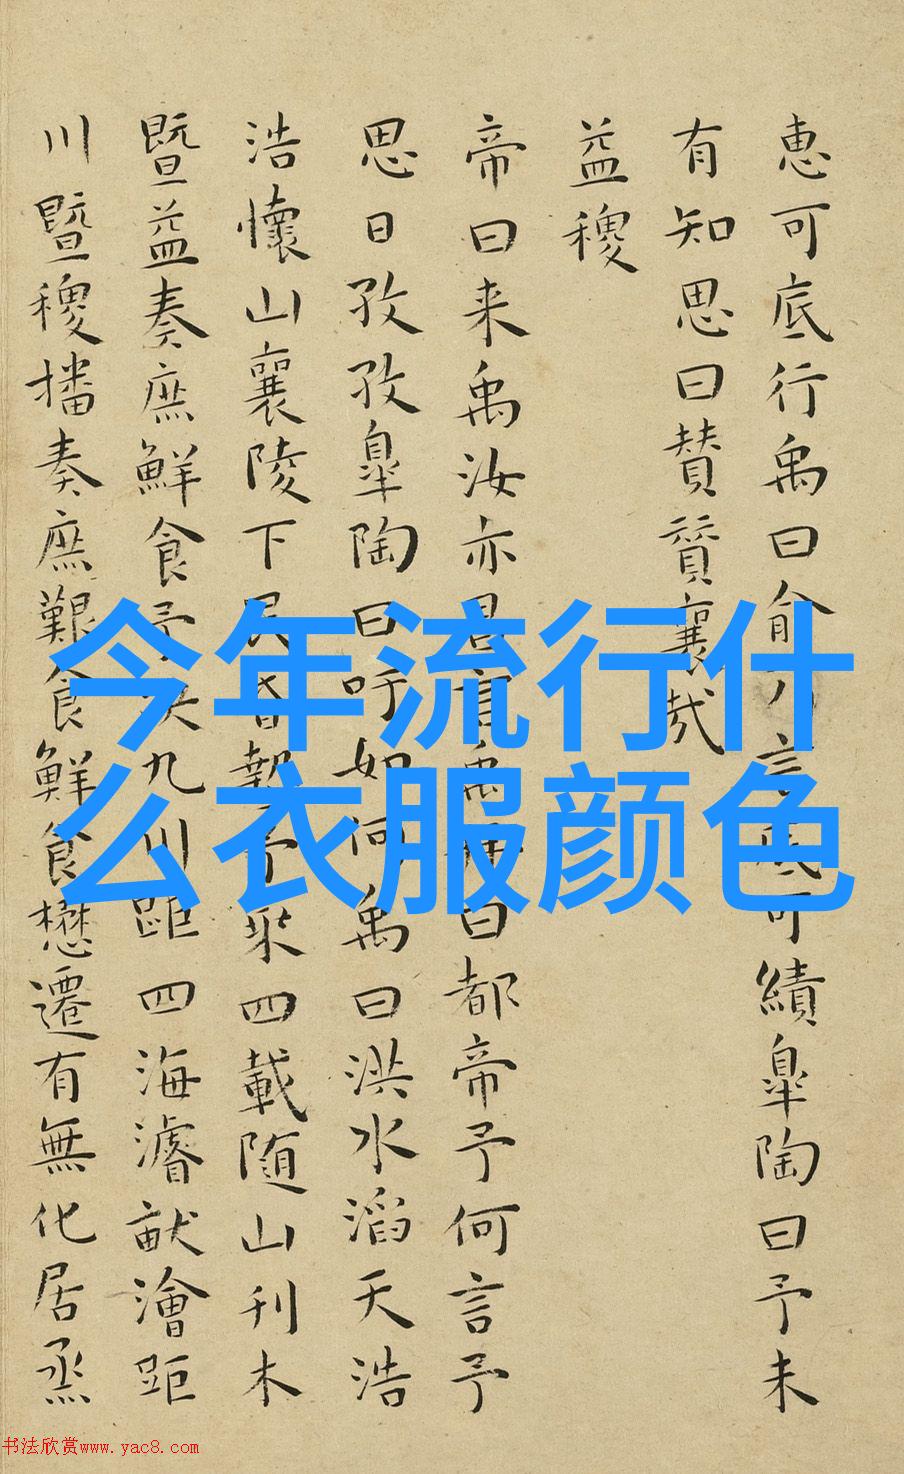 恵可底行禹曰俞乃言底可績皐陶曰予未
有知思曰賛賛襄哉
益稷
帝曰来禹汝亦昌言禹拜曰都帝予何言予
思日孜孜皐陶曰吁如何禹曰洪水滔天浩
浩懷山襄陵下民昏墊予乗四載随山刊木
暨益奏庶鮮食予决九川距四海濬畎澮距
川暨稷播奏庶艱食鮮食懋遷有無化居烝
今年流行什
么衣服颜色
书法欣赏www.yac8.com